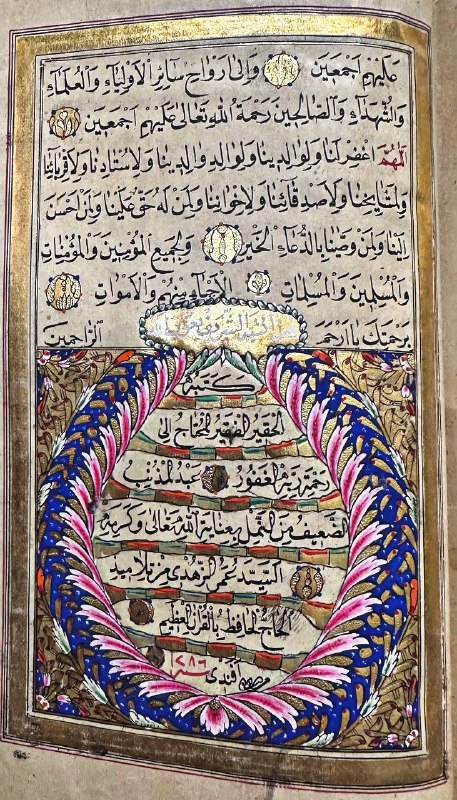 عليهم اجمعين والى ارواح سائر الاولياء والعلماء
والشهداء والصالحين رحمة الله تعالى عليهم اجمعين
اللهم اغفر لنا ولوالدينا ولوالد والدينا ولاستاذنا ولاقربائنا
ولمشايخنا ولاصدقائنا ولاخواننا ولمن له حق علينا ولمن احسن
الينا ولمن وصنا بالدعاء الخير ولجميع المؤمنين والمؤمنات
والمسلمين والمسلمات الاحياء منهم والاموات
برحمتك يا ارحم الراحمين
كتبه
الحقير الفقير المحتاج الى
رحمة ربه الغفور عبد المذنب
الضعيف من النمل بعناية الله تعالى وكرمه
السيد عمر الزهدى من تلاميذ
الحاج الحافظ بالقران العظيم
افندى
سنه ١٢٨٦